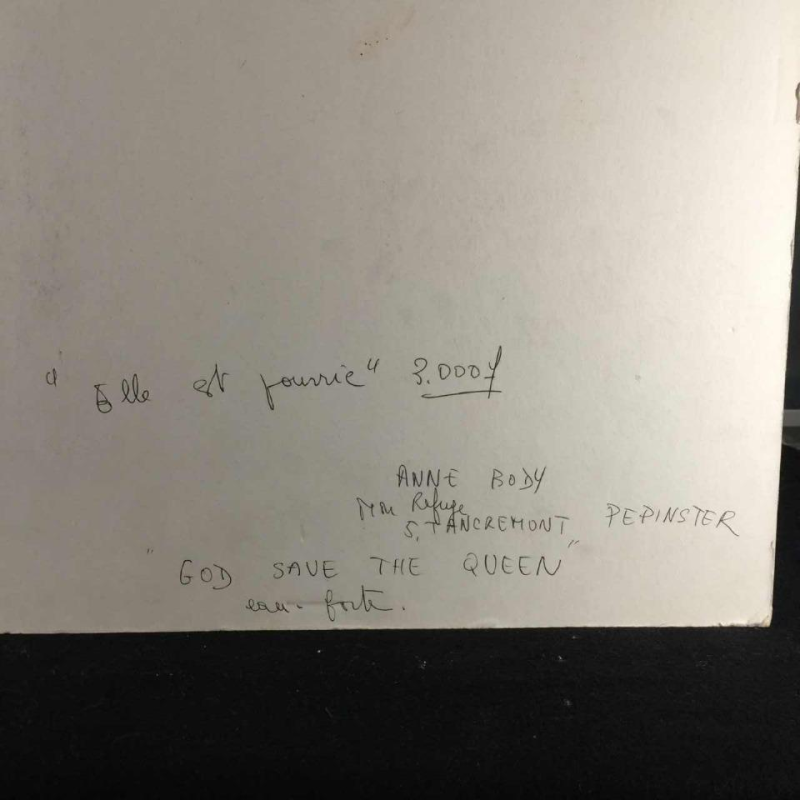 "Elle est pourrie" 3.000f
ANNE BODY
Mon Refuge
5, TANCREMONT PEPINSTER
"GOD SAVE THE QUEEN"
eau-forte.